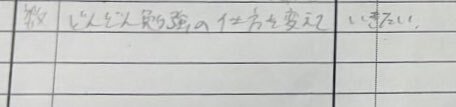 数 どんどん勉強の仕方を変えていきたい。